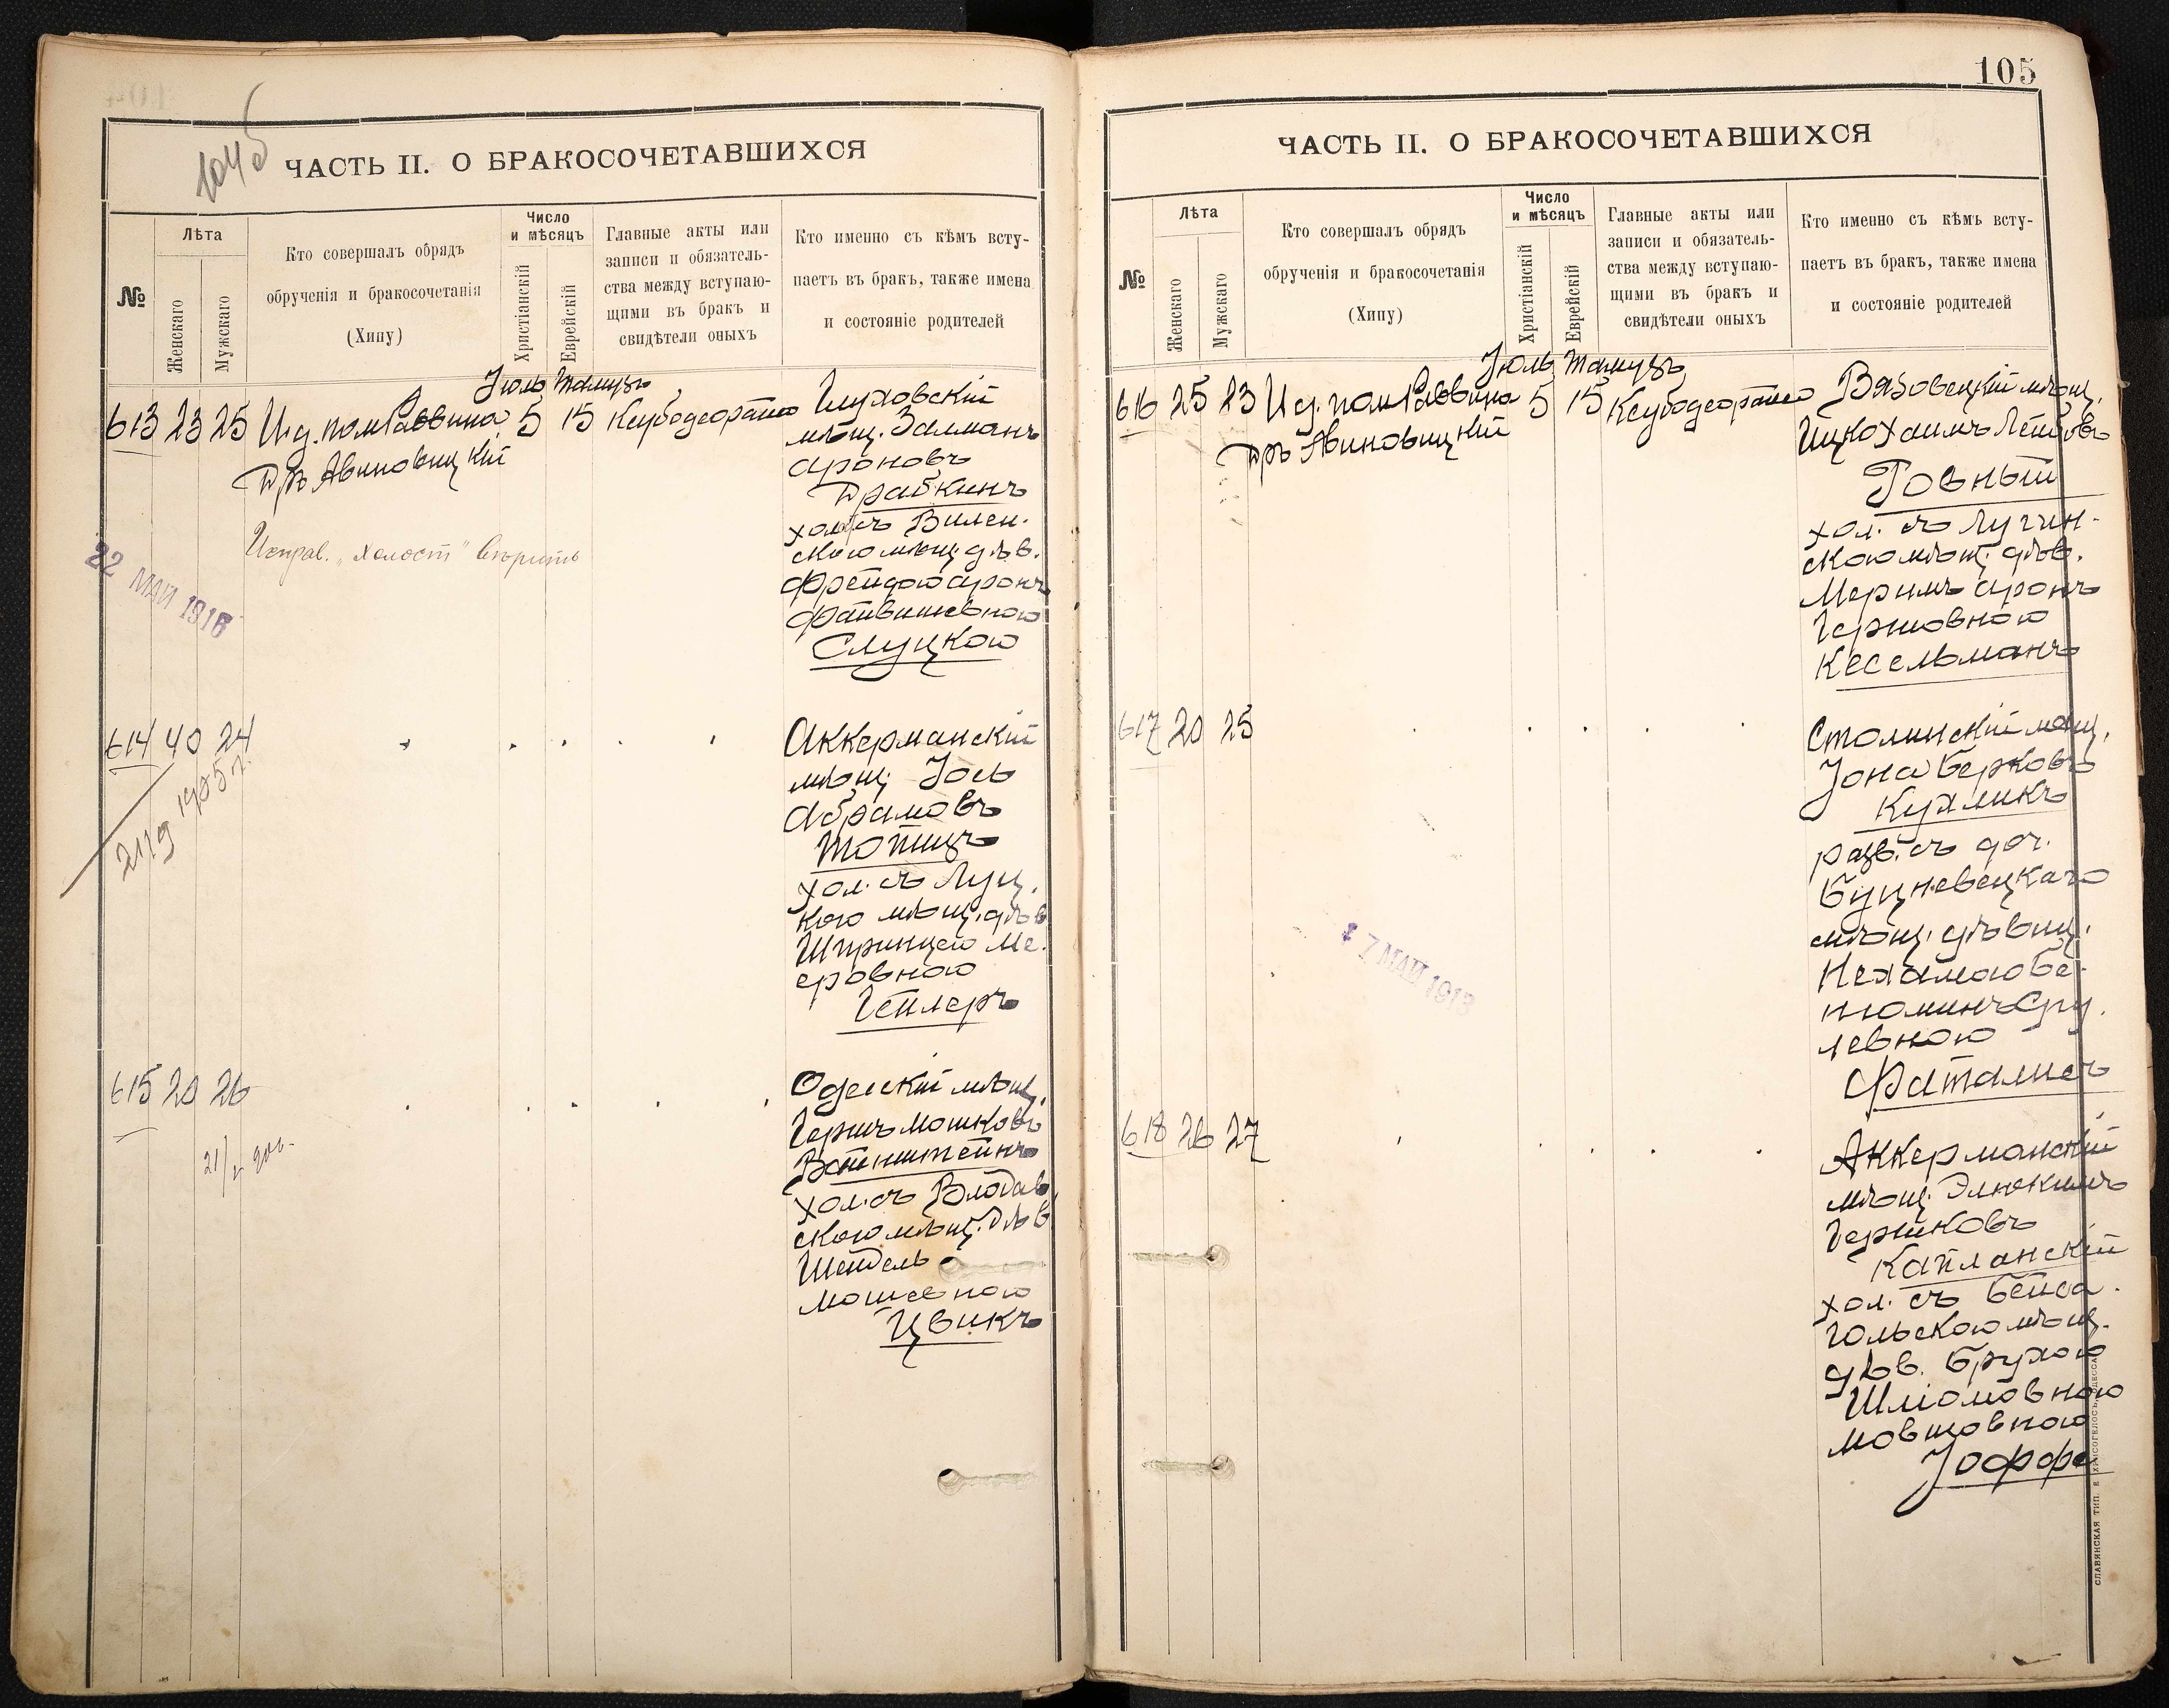 104 б
ЧАСТЬ II. О БРАКОСОЧЕТАВШИХСЯ
№
Лѣта
Женскаго
Мужскаго
Кто совершалъ обрядъ
обрученія и бракосочетанія
(Хипу)
Число
и мѣсяцъ
Христіанскій
Еврейскій
Главные акты или
записи и обязатель-
ства между вступаю-
щими въ бракъ и
свидѣтели оныхъ
Кто именно съ кѣмъ всту-
паетъ въ бракъ, также имена
и состояніе родителей
Іюль Тамузъ
613 23 25 И.д. пом Раввина 5 15
Д-ръ Авиновицкій
Глуховскій
мѣщ. Залманъ
Ароновъ
Драбкинъ
хол. съ Вилен.
скою мѣщ. дѣв.
Фрейдою Аронъ
Файвишевною
Слуцкою
Исправ. "холост" вѣрить
22 МАЙ 1916
614 40 24
1905 г.
2179
Аккерманскій
мѣщ. Іось
Абрамовъ
хол. съ Луц.
кою мѣщ. дѣв
Шпринцею Ме.
еровною
Геллеръ
615 20 26
Одесскій мѣщ.
Гершъ Мошковъ
Вайнштейнъ
хол. съ Влодав
скою мѣщ. дѣв
Шейдель
Мошевною
Цвикъ
105
ЧАСТЬ II. О БРАКОСОЧЕТАВШИХСЯ
№
Лѣта
Женскаго
Мужскаго
Кто совершалъ обрядъ
обрученія и бракосочетанія
(Хипу)
Число
и мѣсяцъ
Христіанскій
Еврейскій
Главные акты или
записи и обязатель-
ства между вступаю-
щими въ бракъ и
свидѣтели оныхъ
Кто именно съ кѣмъ всту-
паетъ въ бракъ, также имена
и состояніе родителей
Іюль Тамузъ
616 25 23 И.д. пом Раввина 5 15
Д-ръ Авиновицкій
Вязовецкій мѣщ.
Ицко Хаимъ Лейбовъ
Ровный
хол. съ Лугин-
скою мѣщ. дѣв.
Меримъ Аронъ
Гершовною
Кесельманъ
617 20 25
Столинскій мѣщ.
Іона Берковъ
Кухликъ
разв. съ доч.
Буцневецкаго
мѣщ. дѣвиц.
Нехамою Бе-
ньоминъ Сру.
левною
Фаталисъ
17 МАЙ 1913
618 26 27
Аккерманскій
мѣщ. Эльюкимъ
Гершковъ
Капланскій
хол. съ Бейса.
гольскою мѣщ.
дѣв. Брухою
Шліомовною
Мовшовною
Іоффе
СЛАВЯНСКАЯ ТИП. Е. ХРИСОГЕЛОСЪ, ОДЕССА